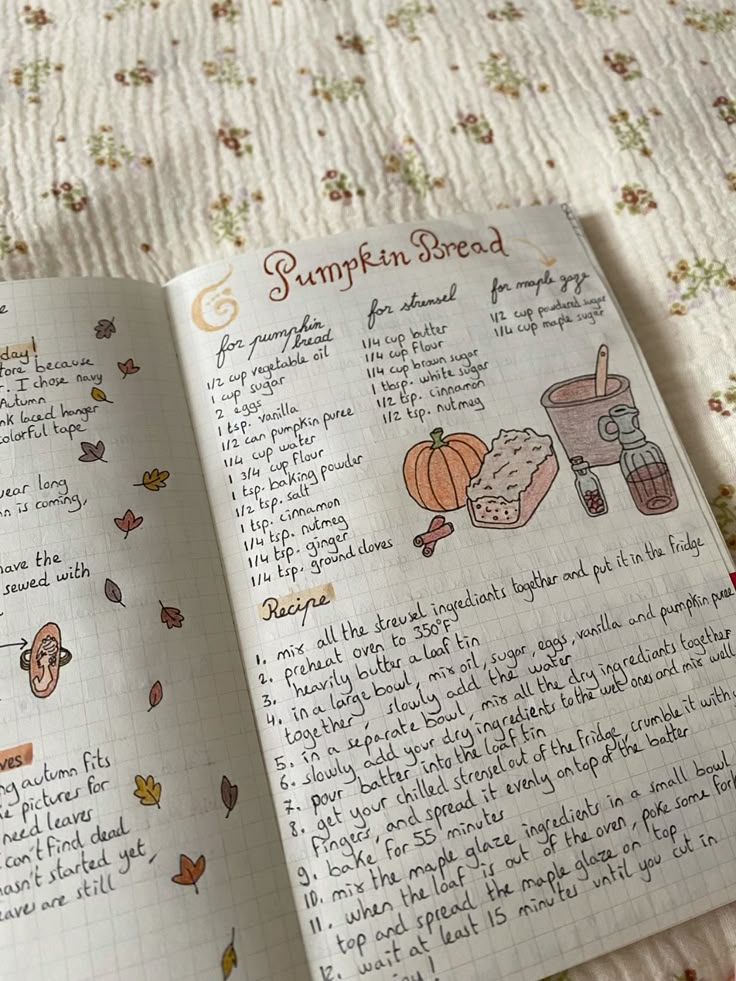 day!
because
. I chose navy
Autumn
laced hanger
colorful tape
year long
is coming,
have the
sewed with
autumn fits
pictures for
need leaves
can't find dead
started yet,
are still
Pumpkin Bread
for pumpkin
bread
1/2 cup vegetable oil
1 cup sugar
2 eggs
1 tsp. vanilla
1/2 can pumpkin puree
1/4 cup water
1 3/4 cup flour
1 tsp. baking powder
1/2 tsp. salt
1 tsp. cinnamon
1/4 tsp. nutmeg
1/4 tsp. ginger
1/4 tsp. ground cloves
for strensel
1/4 cup butter
1/4 cup flour
1/4 cup brown sugar
1 tbsp. white sugar
1/2 tsp. cinnamon
1/2 tsp. nutmeg
for maple gaze
1/2 cup powdered sugar
1/4 cup maple sugar
Recipe
1. mix all the streusel ingrediants together and put it in the fridge
2. preheat oven to 350°F
3. heavily butter a loaf tin
4. in a large bowl, mix oil, sugar, eggs, vanilla and pumpkin puree
together, slowly add the water
5. in a separate bowl, mix all the dry ingrediants together
6. slowly add your dry ingredients to the wet ones and mix well
7. pour batter into the loaf tin
8. get your chilled strensel out of the fridge, crumble it with
fingers, and spread it evenly on top of the batter
9. bake for 55 minutes
10. mix the maple glaze ingredients in a small bowl
11. when the loaf is out of the oven, poke some
top and spread the maple glaze on top
12. wait at least 15 minutes until you cut in